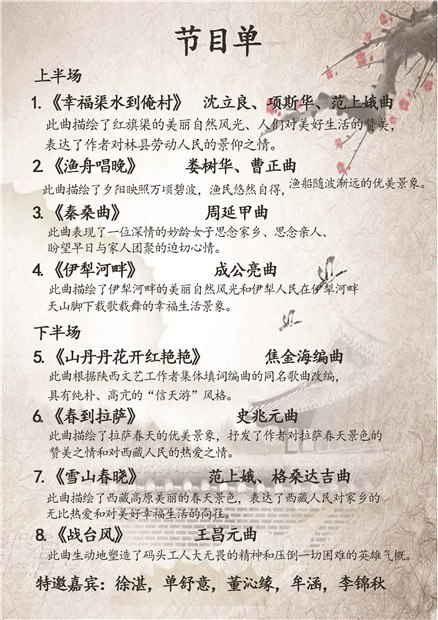 节目单
上半场
1.《幸福渠水到俺村》 沈立良、项斯华、范上娥曲
此曲描绘了红旗渠的美丽自然风光、人们对美好生活的赞美，
表达了作者对林县劳动人民的景仰之情。
2.《渔舟唱晚》 娄树华、曹正曲
此曲描绘了夕阳映照万顷碧波，渔民悠然自得，渔船随波渐远的优美景象。
3.《秦桑曲》 周延甲曲
此曲表现了一位深情的妙龄女子思念家乡、思念亲人、
盼望早日与家人团聚的迫切心情。
4.《伊犁河畔》 成公亮曲
此曲描绘了伊犁河畔的美丽自然风光和伊犁人民在伊犁河畔
天山脚下载歌载舞的幸福生活景象。
下半场
5.《山丹丹花开红艳艳》 焦金海编曲
此曲根据陕西文艺工作者集体填词编曲的同名歌曲改编，
具有纯朴、高亢的“信天游”风格。
6.《春到拉萨》 史兆元曲
此曲描绘了拉萨春天的优美景象，抒发了作者对拉萨春天景色的
赞美之情和对西藏人民的热爱之情。
7.《雪山春晓》 范上娥、格桑达吉曲
此曲描绘了西藏高原美丽的春天景色，表达了西藏人民对家乡的
无比热爱和对美好幸福生活的向往。
8.《战台风》 王昌元曲
此曲生动地塑造了码头工人大无畏的精神和压倒一切困难的英雄气概。
特邀嘉宾：徐湛，单舒意，董沁缘，牟涵，李锦秋